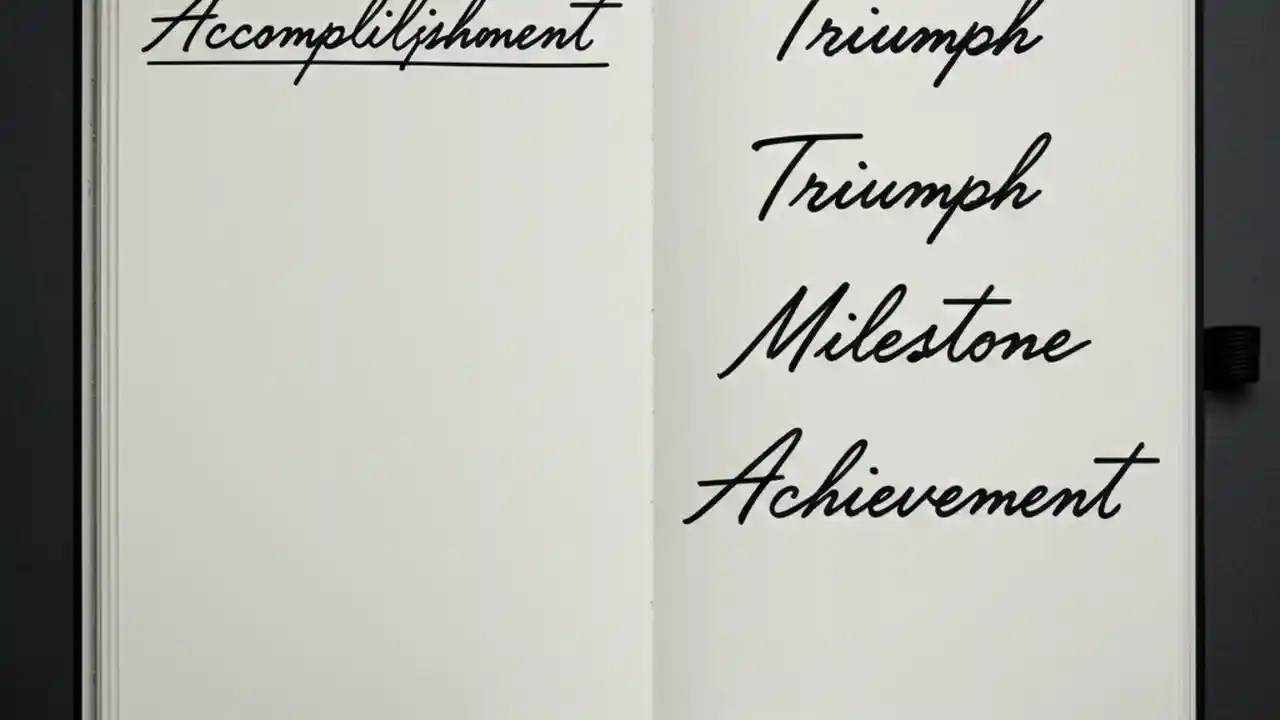 Accompliljshment
Triumph
Triumph
Milestone
Achievement